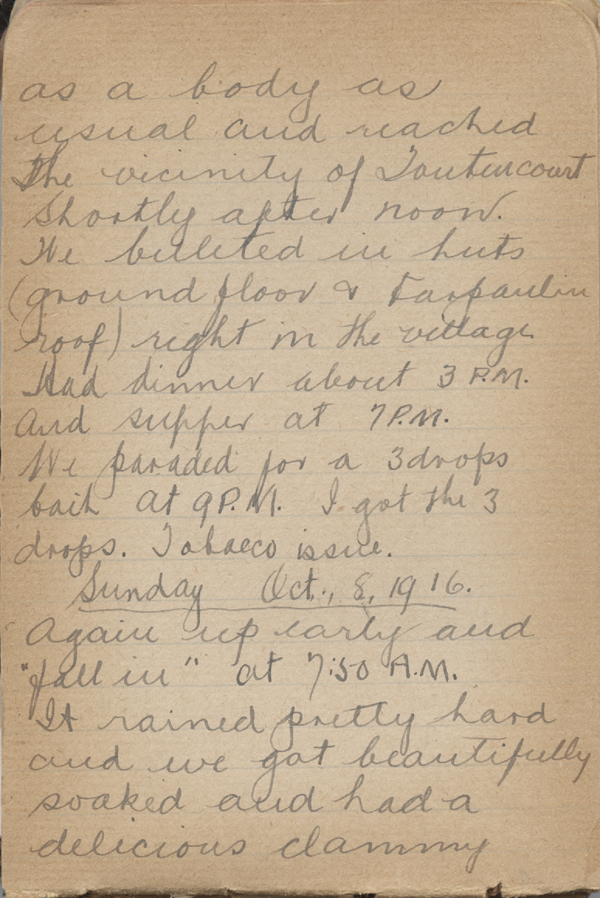 as a body as
usual and reached
the vicinity of Toutencourt
shortly after noon.
We billeted in huts
(ground floor & tarpaulin
roof) right in the village
Had dinner about 3 P.M.
and supper at 7 P.M.
We paraded for a 3 drops
bath at 9 P.M. I got the 3
drops. Tobacco issue.
Sunday Oct., 8, 1916.
Again up early and
"fall in" at 7:50 A.M.
It rained pretty hard
and we got beautifully
soaked and had a
delicious clammy